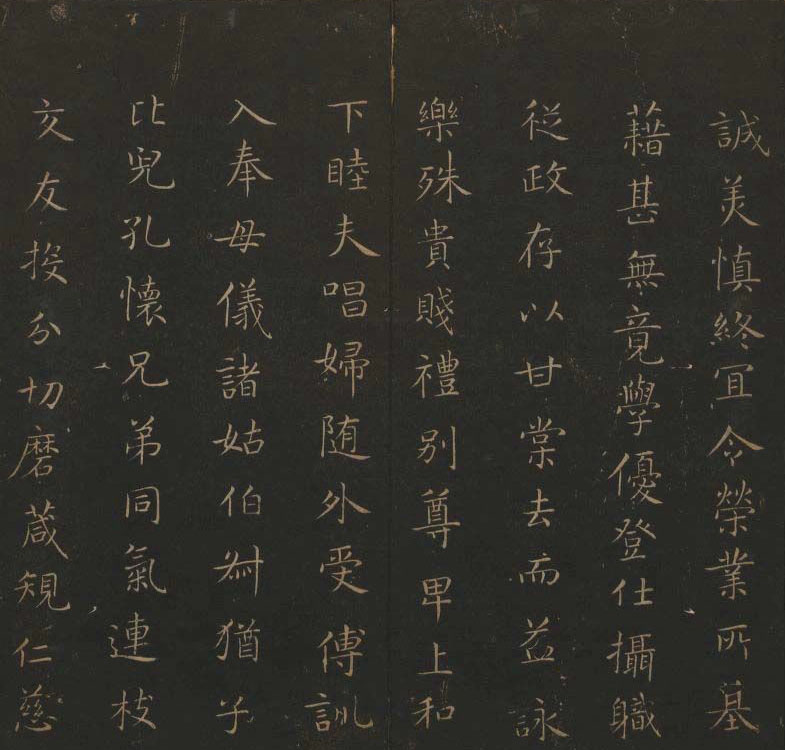 誠美慎終冝令榮業所基
藉甚無竟學優登仕攝職
従政存以甘棠去而益詠
樂殊貴賤禮别尊卑上和
下睦夫唱婦随外受傅訓
入奉母儀諸姑伯叔猶子
比兒孔懷兄弟同氣連枝
交友投分切磨葴䂓仁慈